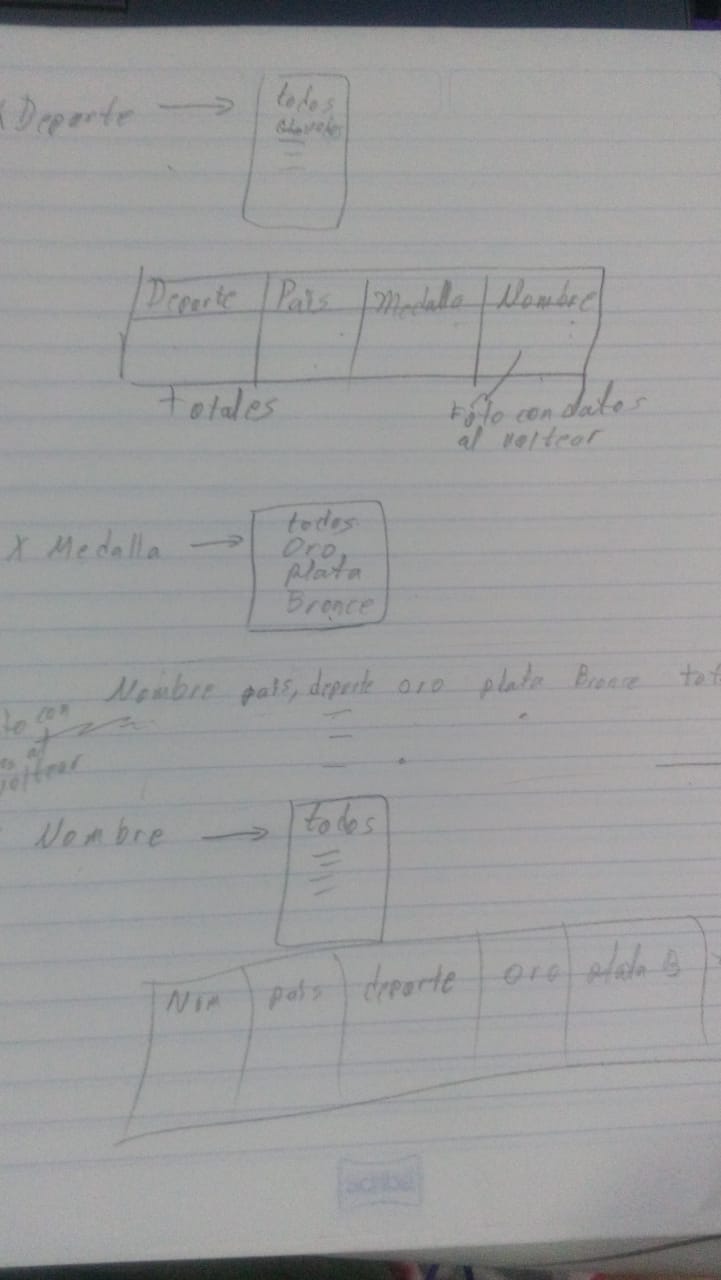 X Deporte → todos
Deporte País Medalla Nombre
totales
Foto con datos
al voltear
X Medalla → todos
Oro
plata
Bronce
Nombre país, deporte oro plata Bronce tot
con
al
voltear
Nombre → todos
Nom país deporte oro plata B
scribe